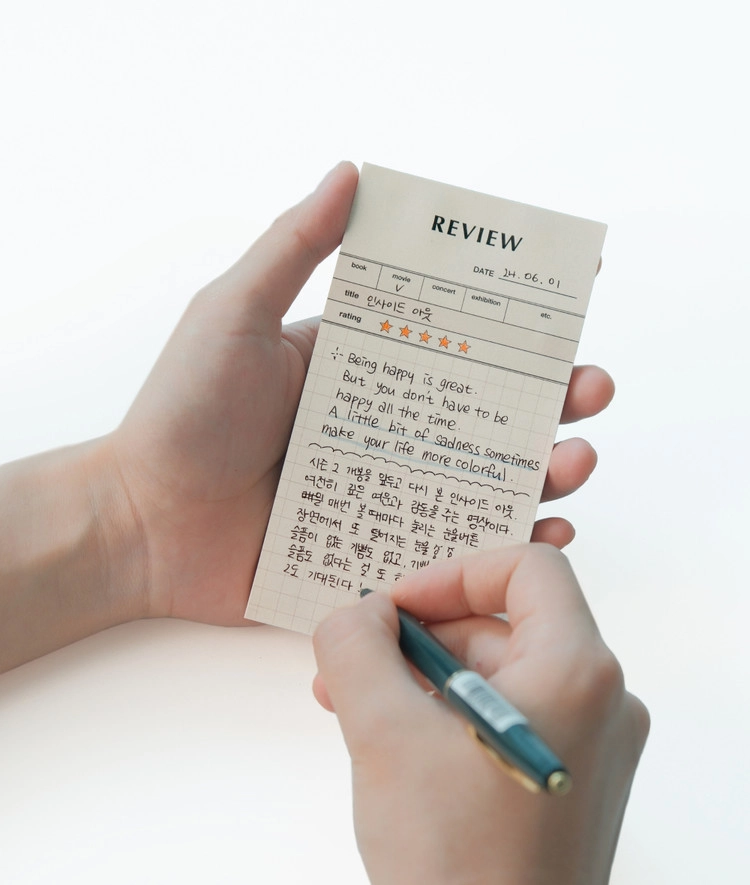 REVIEW
DATE 24.06.01
book movie concert exhibition etc.
V
title 인사이드 아웃
rating
Being happy is great.
But you don't have to be
happy all the time.
A little bit of sadness sometimes
make your life more colorful.
시즌 2 개봉을 앞두고 다시 본 인사이드 아웃.
여전히 깊은 여운과 감동을 주는 명작이다.
매번 볼 때마다 눌리는 눈물버튼
장면에서 또 떨어지는 눈물
슬픔이 없는 기쁨도 없고,
슬픔도 없다는 걸 또
2도 기대된다